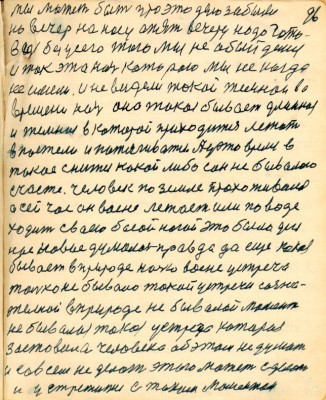 мы может быт про это дело забыли 96
но вечер на носу опят вечеру надо гото-
вца без чего этого мы не обойдемся
и так эта ноч которую мы не когда
не имели. и не видели такой темной во
времени ноч она такая бывает длинная
и темная в которой приходится лежать
в постели и потягиватся А ето время в
такое снится какой либо сон не бывалого
счасте. человек по земле прохаживался
а сей час он во сне летает или по воде
ходит своею босой ногой это было для
правда да еще какая
бывает в природе на во сне устреча
только не бывало такой устречи созна-
телной в природе не бывалой момент
не бывала такая устреча которая
заставила человека об этом не думат
и совсем не делат этого может сделат
и устретится с таким моментом